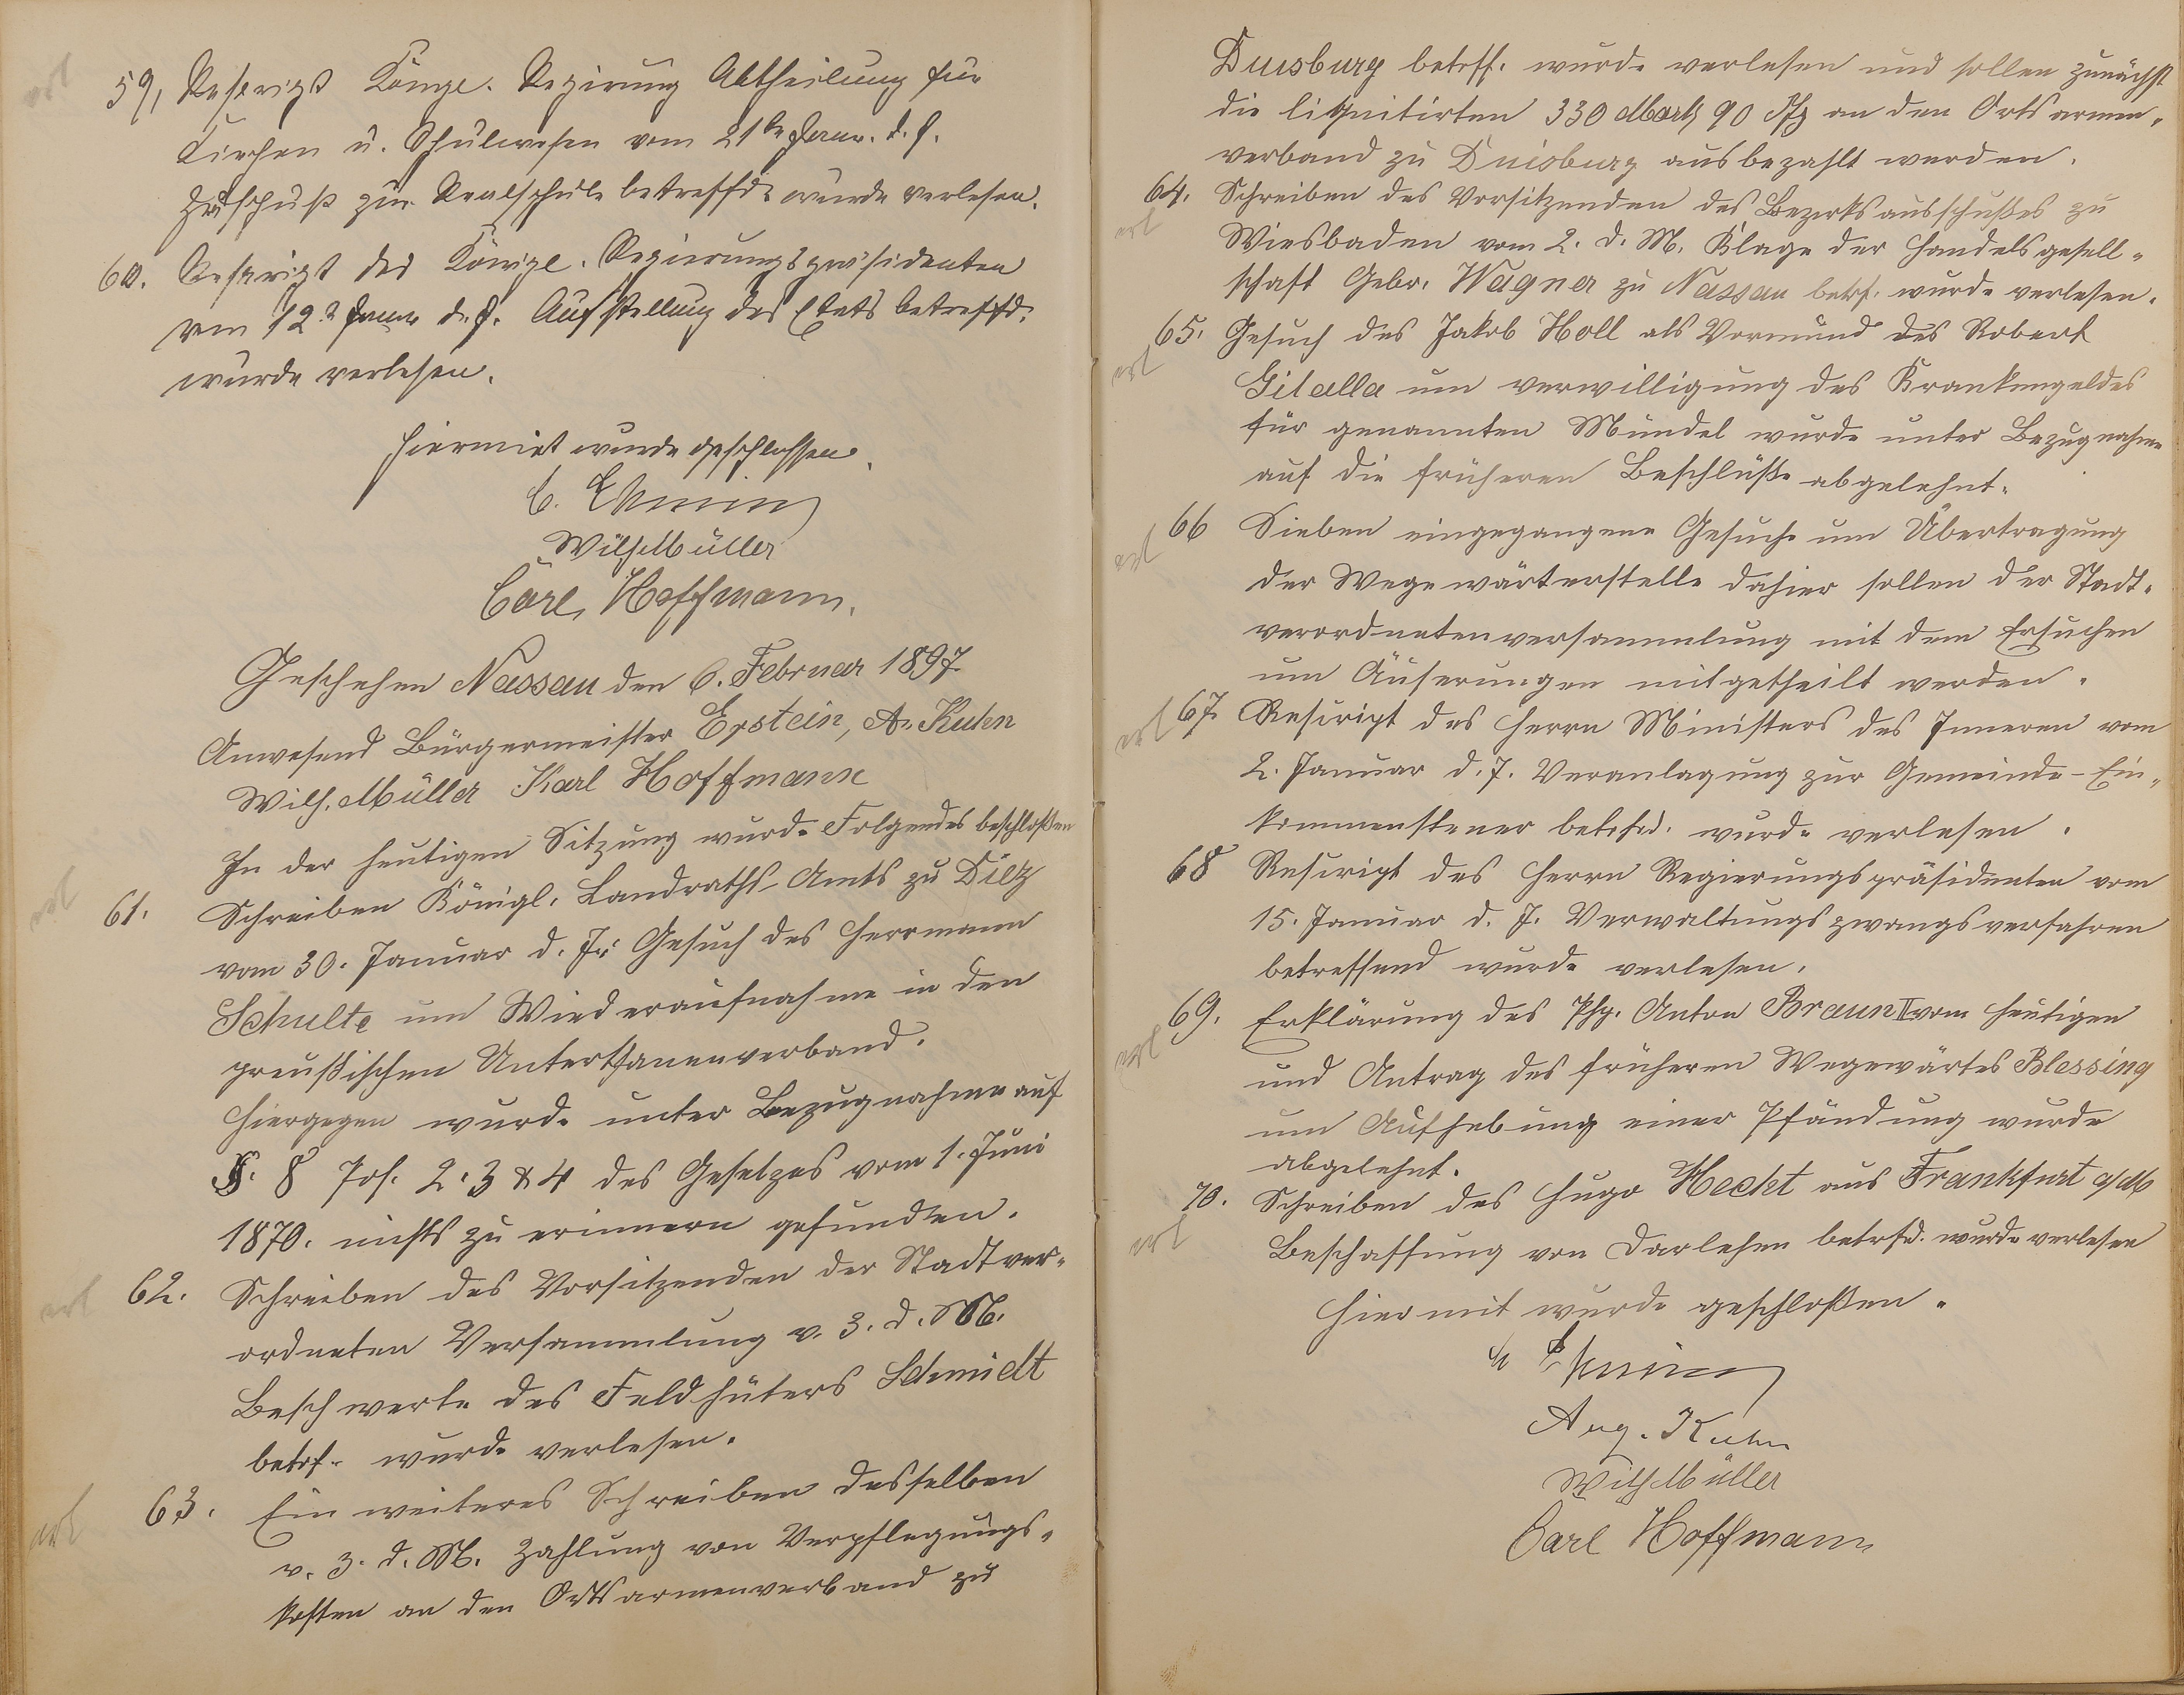 erl
59, Rescript Königl. Regirung Abtheilung für
Kirchen u. Schulwesen vom 21ten Januar. d. J.
Zuschuß zur Realschule betreffd. wurde verlesen.
60. Rescript des Königl. Regierungspräsidenten
vom 12. Januar d. J. Aufstellung des Etats betreffd.
wurde verlesen.
Hiermit wurde geschlossen.
Wilh Müller
Carl Hoffmann.
Geschehen Nassau den 6. Februar 1897.
Anwesend Bürgermeister Epstein, A. Kuhn
Wilh. Müller Karl Hoffmann
In der heutigen Sitzung wurde Folgendes beschloßen
erl
61. Schreiben Königl. Landraths-Amts zu Diez
vom 30. Januar d. Js. Gesuch des Herrmann
Schulte um Wiederaufnahme in den
preußischen Unterthanenverband.
Hiergegen wurde unter Bezugnahme auf
§. 8 Pos. 2. 3 & 4 des Gesetzes vom 1. Juni
1870. nichts zu erinnern gefunden.
erl
62. Schreiben des Vorsitzenden der Stadtver-
ordneten Versammlung v. 3. d. M.
Beschwerde des Feldhüters Schmidt
betrf. wurde verlesen.
erl
63. Ein weiteres Schreiben desselben
v. 3. d. M. Zahlung von Verpflegungs-
kosten an den Ortsarmenverband zu
Duisburg betrff. wurde verlesen und sollen zunächst
die liquitirten 330 Mark 90 Pfg an den Ortsarmen-
verband zu Duisburg ausbezahlt werden.
64. Schreiben des Vorsitzenden des Bezirksausschußes zu
erl
Wiesbaden vom 2. d. M. Klage der Handelsgesell-
schaft Gebr. Wagner zu Nassau betrf. wurde verlesen.
65. Gesuch des Jakob Holl als Vormund des Robert
erl
Gilella um verwilligung des Krankengeldes
für genannten Mündel wurde unter Bezugnahme
auf die früheren Beschlüße abgelehnt.
66 Sieben eingegangene Gesuche um Übertragung
erl
der Wegewärterstelle dahier sollen der Stadt-
verordnetenversammlung mit dem Ersuchen
um Äuserungen mitgetheilt werden.
67. Rescript des Herrn Ministers des Inneren vom
erl
2. Januar d. J. Veranlagung zur Gemeinde-Ein-
kommensteuer betrfd. wurde verlesen.
68 Rescript des Herrn Regierungspräsidenten vom
15. Januar d. J. Verwaltungszwangsverfahren
betreffend wurde verlesen.
69. Erklärung des Php. Anton Braun II vom heutigen
erl
und Antrag des früheren Wegewärters Blessing
um Aufhebung einer Pfändung wurde
abgelehnt.
70. Schreiben des Hugo Hecht aus Frankfurt a/M
erl
Beschaffung von Darlehen betrfd. wurde verlesen
Hiermit wurde geschloßen.
Aug. Kuhn
Wilh Müller
Carl Hoffmann